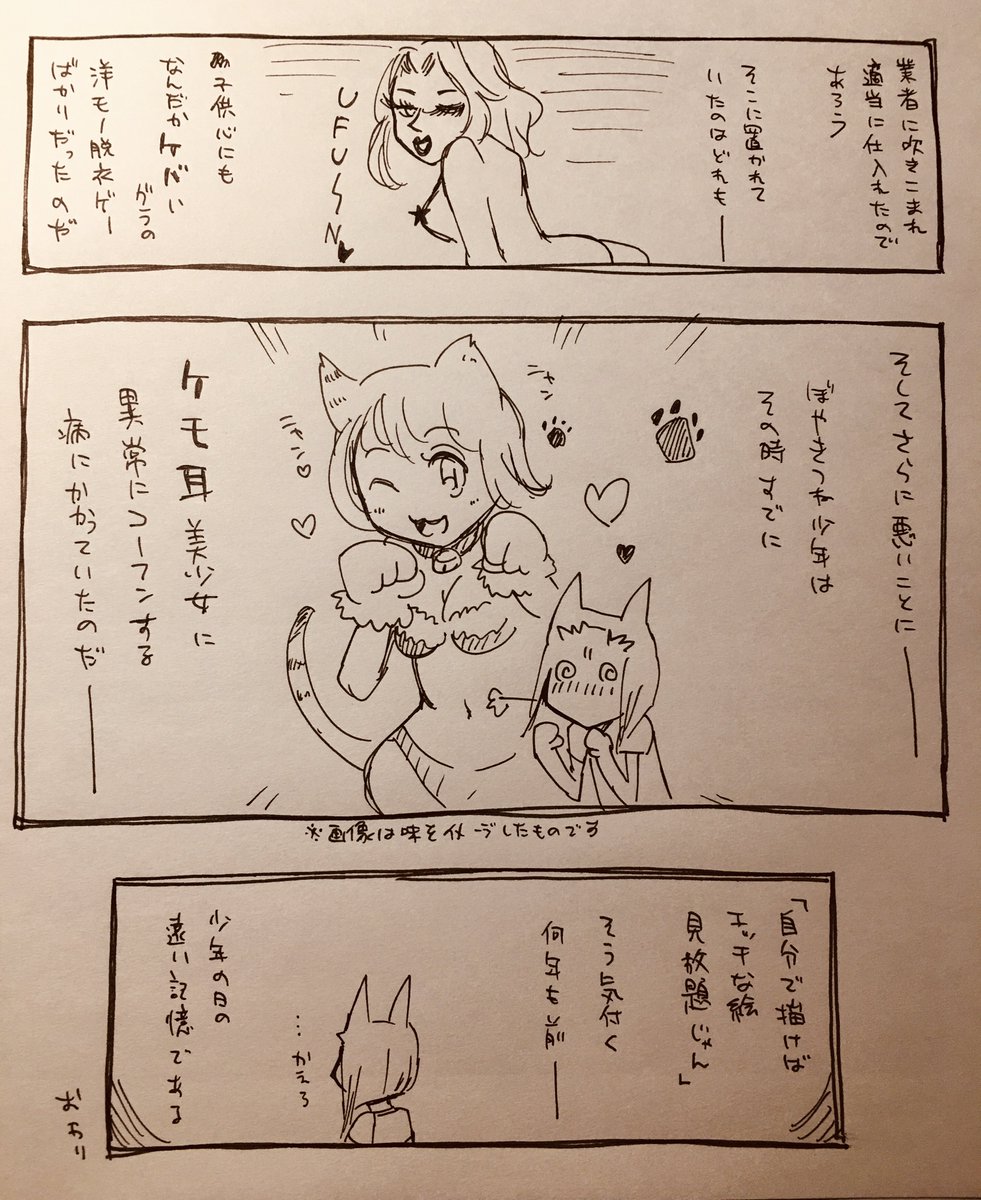 業者に吹きこまれ
適当に仕入れたので
あろう
そこに置かれて
いたのはどれも―
UFUSN♥
子供心にも
なんだかケバい
グラの
洋モノ脱衣ゲー
ばかりだったのだ
そしてさらに悪いことに―
ぼやきつね少年は
その時すでに
ニャン
ニャン♡
ケモ耳美少女に
異常にコーフンする
病にかかっていたのだ―
※画像は味をイメージしたものです
「自分で描けば
エッチな絵
見放題じゃん」
そう気付く
何年も前―
…かえろ
少年の日の
遠い記憶である
おわり